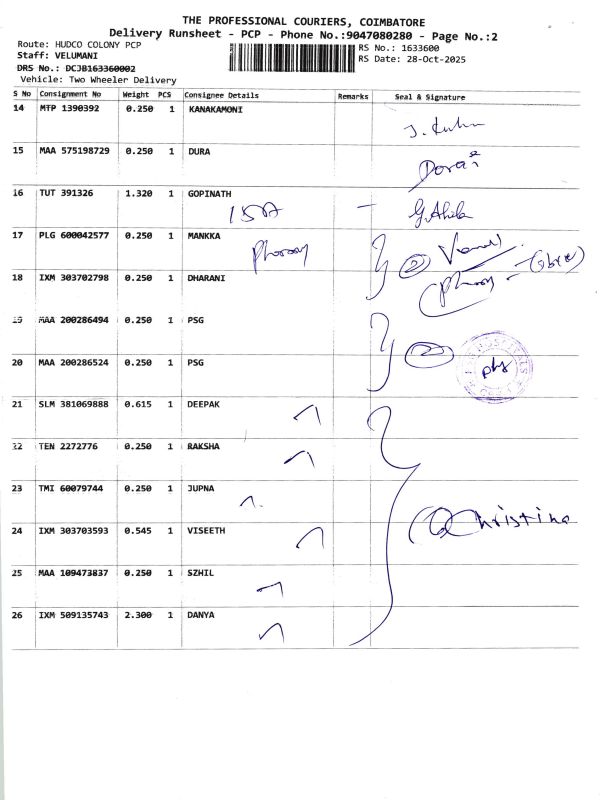 THE PROFESSIONAL COURIERS, COIMBATORE
Delivery Runsheet - PCP - Phone No.:9047080280 - Page No.:2
Route: HUDCO COLONY PCP
RS No.: 1633600
Staff: VELUMANI
RS Date: 28-Oct-2025
DRS No.: DCJB163360002
Vehicle: Two Wheeler Delivery
S No Consignment No Weight PCS Consignee Details Remarks Seal & Signature
14 MTP 1390392 0.250 1 KANAKAMONI
15 MAA 575198729 0.250 1 DURA
16 TUT 391326 1.320 1 GOPINATH
17 PLG 600042577 0.250 1 MANKKA
2
18 IXM 303702798 0.250 1 DHARANI
19 MAA 200286494 0.250 1 PSG
20 MAA 200286524 0.250 1 PSG
2
21 SLM 381069888 0.615 1 DEEPAK
22 TEN 2272776 0.250 1 RAKSHA
23 TMI 60079744 0.250 1 JUPNA
24 IXM 303703593 0.545 1 VISEETH
Christina
25 MAA 109473837 0.250 1 SZHIL
26 IXM 509135743 2.300 1 DANYA